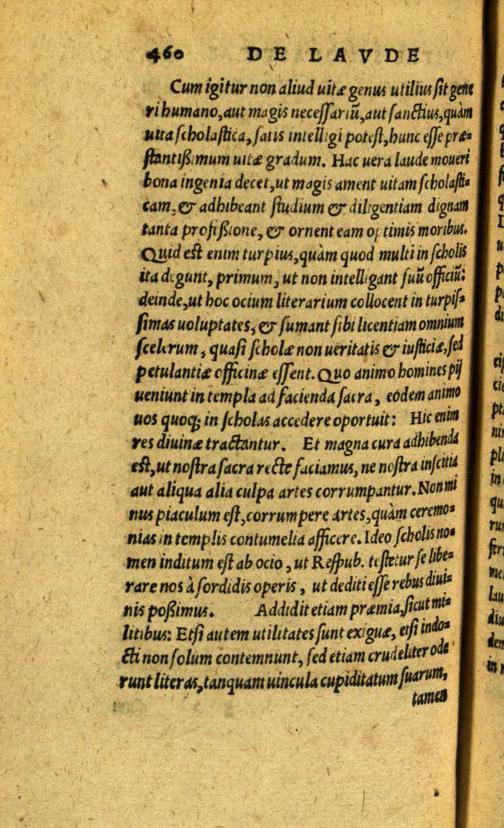 460 DE LAVDE
Cum igitur non aliud uitæ genus utilius sit gene
ri humano, aut magis necessariũ, aut sanctius, quàm
uita scholastica, satis intelligi potest, hunc esse præ-
stantißimum uitæ gradum. Hac uera laude moueri
bona ingenia decet, ut magis ament uitam scholasti-
cam, & adhibeant studium & diligentiam dignam
tanta profeßione, & ornent eam optimis moribus.
Quid est enim turpius, quàm quod multi in scholis
ita degunt, primum, ut non intelligant suũ officiũ:
deinde, ut hoc ocium literarium collocent in turpis-
simas uoluptates, & sumant sibi licentiam omnium
scelerum, quasi scholæ non ueritatis & iusticiæ, sed
petulantiæ officinæ essent. Quo animo homines pij
ueniunt in templa ad facienda sacra, eodem animo
uos quoq; in scholas accedere oportuit: Hic enim
res diuinæ tractantur. Et magna cura adhibenda
est, ut nostra sacra recte faciamus, ne nostra inscitia
aut aliqua alia culpa artes corrumpantur. Non mi
nus piaculum est, corrumpere artes, quàm ceremo-
nias in templis contumelia afficere. Ideo scholis no-
men inditum est ab ocio, ut Respub. testetur se libe-
rare nos à sordidis operis, ut dediti esse rebus diui-
nis poßimus. Addidit etiam præmia, sicut mi-
litibus: Etsi autem utilitates sunt exiguæ, etsi indo-
cti non solum contemnunt, sed etiam crudeliter ode
runt literas, tanquam uincula cupiditatum suarum,
tamen